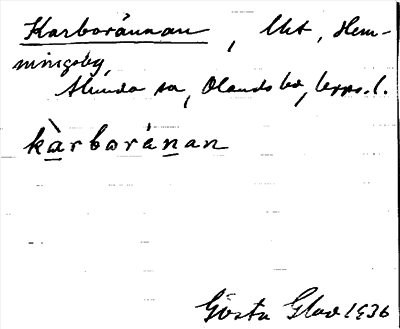 Karboránnan, Urt, Hem-
mingsby,
Alunda sn, Olands hd, Upps. l.
kàrboránan
Gösta Glav 1936